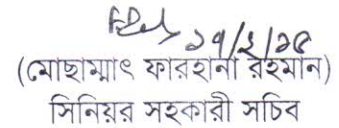 ১৭/২/১৫
(মোছাম্মাৎ ফারহানা রহমান)
সিনিয়র সহকারী সচিব